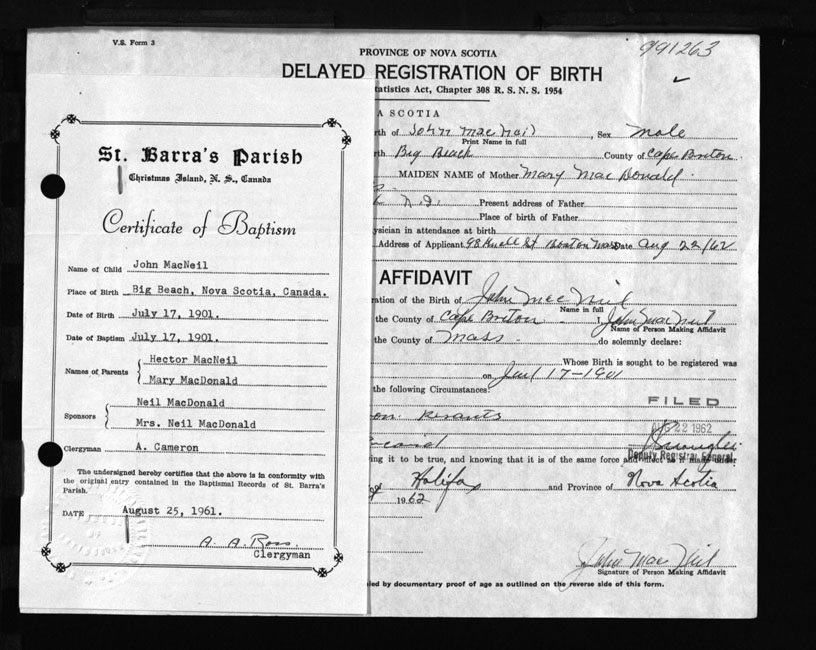 V.S. Form 3
991263
PROVINCE OF NOVA SCOTIA
DELAYED REGISTRATION OF BIRTH
tatistics Act, Chapter 308 R. S. N. S. 1954
A SCOTIA
rth of John MacNeil, Sex Male
Print Name in full
rth Big Beach County of Cape Breton
MAIDEN NAME of Mother Mary MacDonald
Present address of Father
Place of birth of Father
ysician in attendance at birth
Address of Applicant 98 St Boston Mass Date Aug 22/62
AFFIDAVIT
ration of the Birth of John Mac Neil
Name in full
the County of Cape Breton I, John Mac Neil
Name of Person Making Affidavit
the County of Mass. do solemnly declare:
Whose Birth is sought to be registered was
on 17-1901
the following Circumstances:
FILED
AUG 22 1962
Deputy Registrar General
ing it to be true, and knowing that it is of the same force and effect as if made under
Halifax and Province of Nova Scotia
1962
John Mac Neil
Signature of Person Making Affidavit
ed by documentary proof of age as outlined on the reverse side of this form.
St. Barra's Parish
Christmas Island, N. S., Canada
Certificate of Baptism
Name of Child John MacNeil
Place of Birth Big Beach, Nova Scotia, Canada.
Date of Birth July 17, 1901.
Date of Baptism July 17, 1901.
Names of Parents Hector MacNeil
Mary MacDonald
Sponsors Neil MacDonald
Mrs. Neil MacDonald
Clergyman A. Cameron
The undersigned hereby certifies that the above is in conformity with
the original entry contained in the Baptismal Records of St. Barra's
Parish.
DATE August 25, 1961.
A. A. Ross.
Clergyman